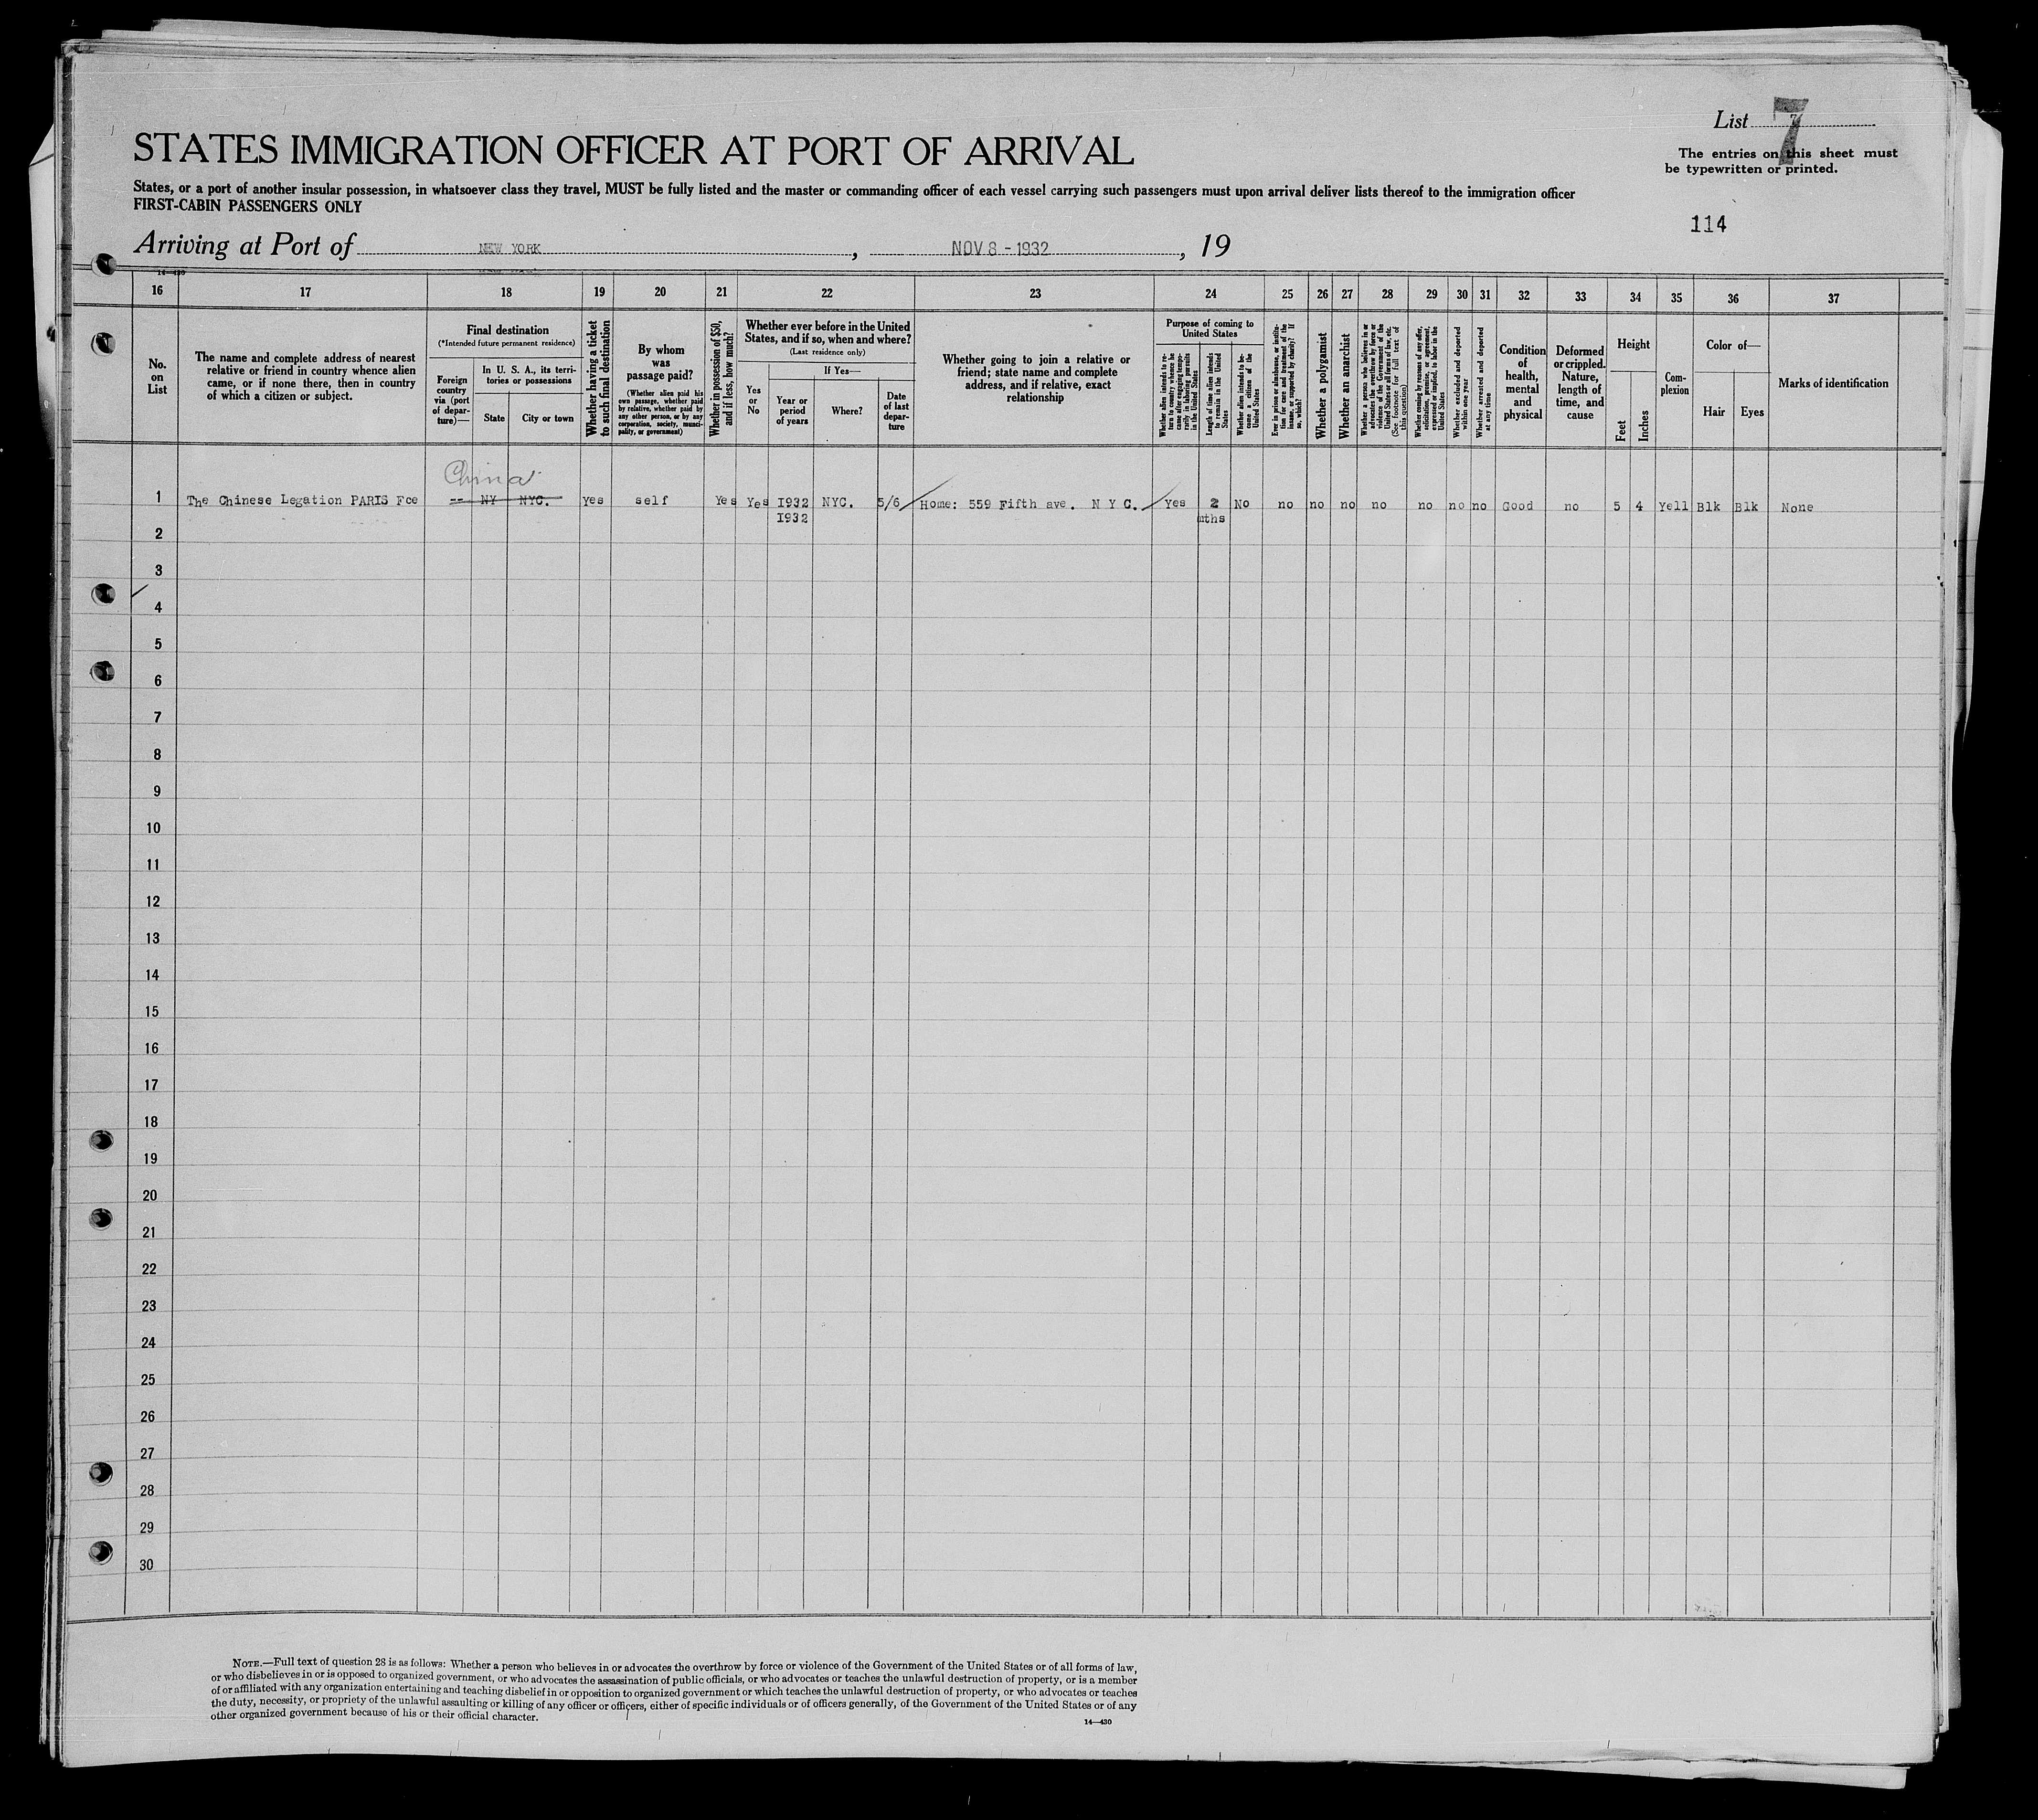 List 7
STATES IMMIGRATION OFFICER AT PORT OF ARRIVAL
The entries on this sheet must
be typewritten or printed.
States, or a port of another insular possession, in whatsoever class they travel, MUST be fully listed and the master or commanding officer of each vessel carrying such passengers must upon arrival deliver lists thereof to the immigration officer
FIRST-CABIN PASSENGERS ONLY
114
Arriving at Port of NEW YORK, NOV 8 - 1932, 19
14—430
16 17 18 19 20 21 22 23 24 25 26 27 28 29 30 31 32 33 34 35 36 37
No.
on
List
The name and complete address of nearest
relative or friend in country whence alien
came, or if none there, then in country
of which a citizen or subject.
Final destination
(*Intended future permanent residence)
Foreign
country
via (port
of depar-
ture)—
In U. S. A., its terri-
tories or possessions
State
City or town
Whether having a ticket
to such final destination
By whom
was
passage paid?
(Whether alien paid his
own passage, whether paid
by relative, whether paid by
any other person, or by any
corporation, society, munici-
pality, or government)
Whether in possession of $50,
and if less, how much?
Whether ever before in the United
States, and if so, when and where?
(Last residence only)
If Yes—
Yes
or
No
Year or
period
of years
Where?
Date
of last
depar-
ture
Whether going to join a relative or
friend; state name and complete
address, and if relative, exact
relationship
Purpose of coming to
United States
Whether alien intends to re-
turn to country whence he
came after engaging tempo-
rarily in laboring pursuits
in the United States
Length of time alien intends
to remain in the United
States
Whether alien intends to be-
come a citizen of the
United States
Ever in prison or almshouse, or institu-
tion for care and treatment of the
insane, or supported by charity? If
so, which?
Whether a polygamist
Whether an anarchist
Whether a person who believes in or
advocates the overthrow by force or
violence of the Government of the
United States or all forms of law, etc.
(See footnote for full text of
this question)
Whether coming by reason of any offer,
solicitation, promise, or agreement,
expressed or implied, to labor in the
United States
Whether excluded and deported
within one year
Whether arrested and deported
at any time
Condition
of
health,
mental
and
physical
Deformed
or crippled.
Nature,
length of
time, and
cause
Height
Feet
Inches
Com-
plexion
Color of—
Hair
Eyes
Marks of identification
China
1 The Chinese Legation PARIS Fce -- NY NYC. yes self Yes Yes 1932 NYC. 5/6 Home: 559 Fifth ave. N Y C. Yes 2 No no no no no no no no Good no 5 4 Yell Blk Blk None
1932 mths
2
3
4
5
6
7
8
9
10
11
12
13
14
15
16
17
18
19
20
21
22
23
24
25
26
27
28
29
30
NOTE.—Full text of question 28 is as follows: Whether a person who believes in or advocates the overthrow by force or violence of the Government of the United States or of all forms of law,
or who disbelieves in or is opposed to organized government, or who advocates the assassination of public officials, or who advocates or teaches the unlawful destruction of property, or is a member
of or affiliated with any organization entertaining and teaching disbelief in or opposition to organized government or which teaches the unlawful destruction of property, or who advocates or teaches
the duty, necessity, or propriety of the unlawful assaulting or killing of any officer or officers, either of specific individuals or of officers generally, of the Government of the United States or of any
other organized government because of his or their official character.
14—430